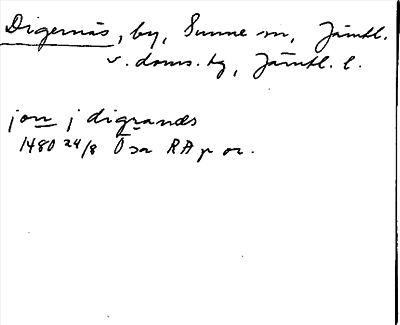 Digernäs, by, Sunne sn, Jämtl.
v. doms. hg, Jämtl. l.
jon j digranæs
1480 24/8 Ösa RAp or.